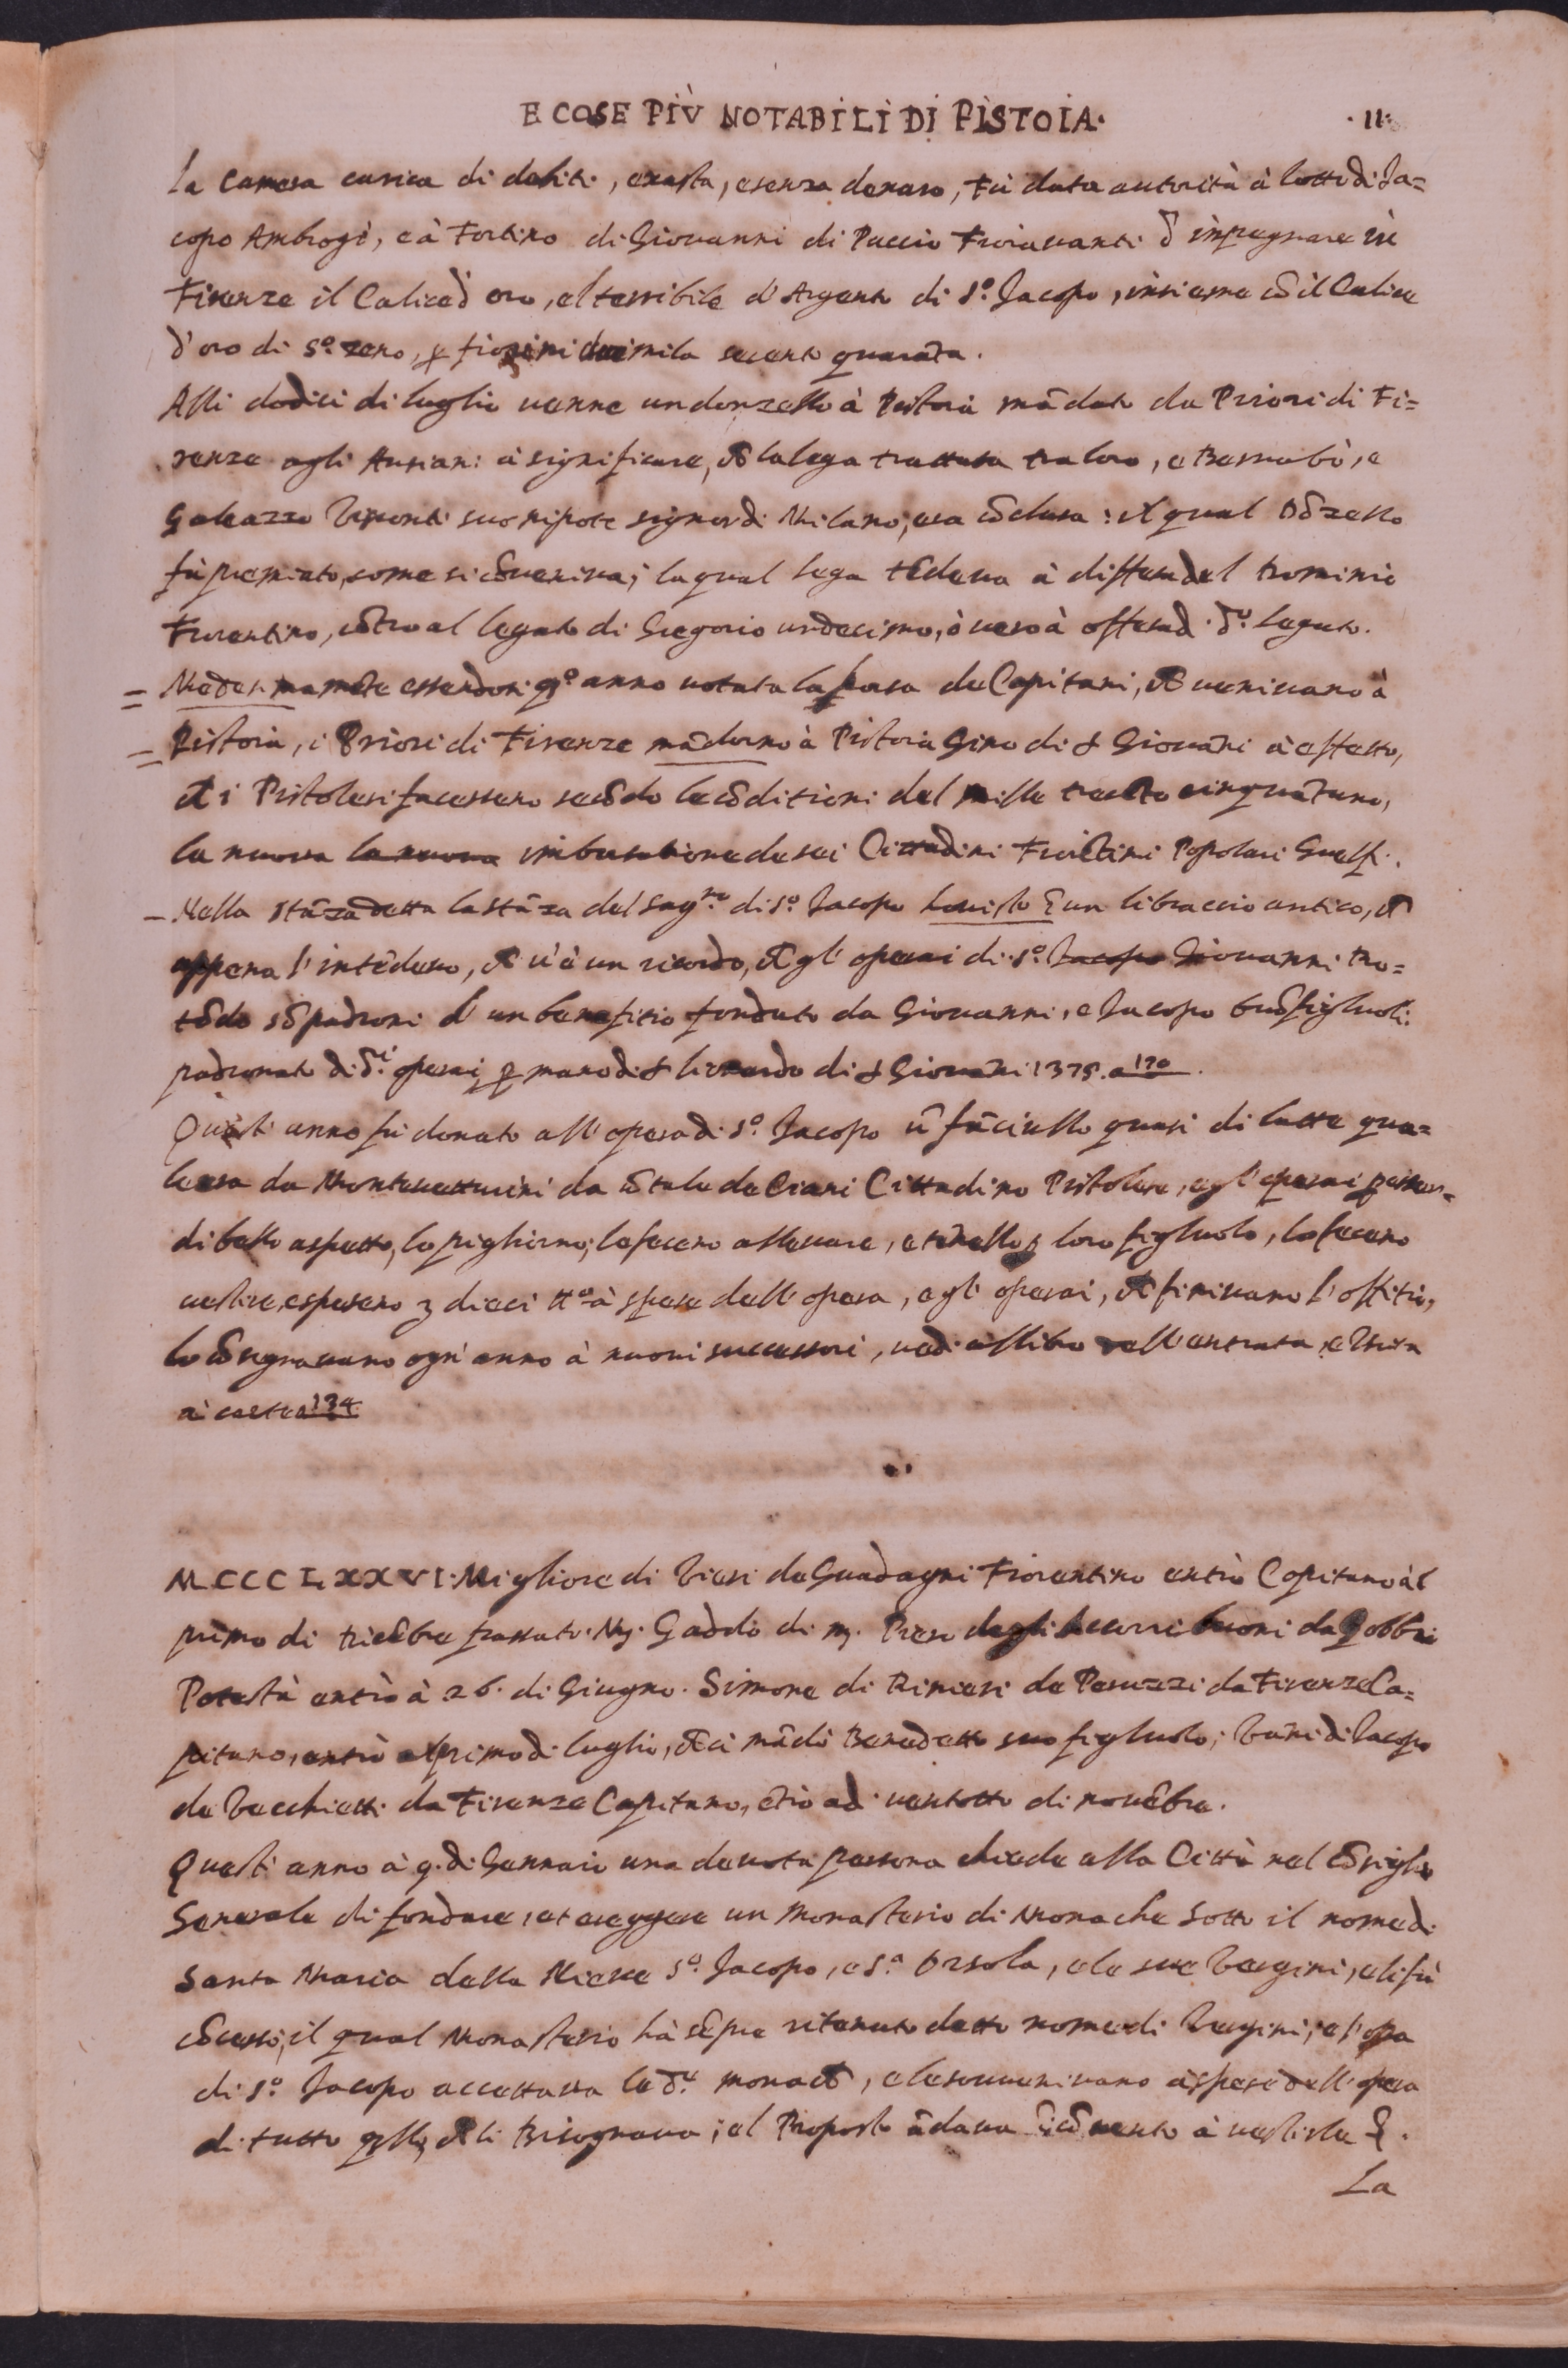 E COSE PIÙ NOTABILI DI PISTOIA. .11.
La Camera carica di debiti, exasta, e senza denaro, fù data autorità à Lotto di Ja=
copo Ambrogi, e à Fortino di Giovanni di Puccio Fioravanti d' impegnare in
Firenze il Calice d' oro, el terribile d' Argento di S.º Jacopo, insieme cō il Calice
d' oro di S.º Zeno, p fiorini duimila secento quarāta.
Alli dodici di luglio venne un donzello à Pistoia mādato da Priori di Fi=
renze agli Anziani à significare, ch̄ la lega trattata tra loro, e Bernabò, e
Galeazzo Visconti suo nipote signor di Milano, era cōclusa: il qual Dōzello
fù premiato, come si cōveniva; la qual lega tēdeva à diffesa del Dominio
Fiorentino, cōtro al legato di Gregorio undecimo, ò vero à offesa d. dº. legato.
= Medesimamēte essendosi qº anno votata la borsa de Capitani, ch̄ venivano à
= Pistoia, i Priori di Firenze mādorno à Pistoia Gino di S Giovāni à effetto,
ch̄ i Pistolesi facessero secōdo le cōditioni del mille trecēto cinquātuno,
la nuova la nuova imborsatione de sei Cittadini Fiorētini Popolari Guelfi.
– Nella stāza detta la stāza del Sagno di S.º Jacopo ho visto ī un libraccio antico, ch̄
appena s' intēdeva, ch̄ v'è un ricordo, ch̄ gl' operai di S.º Jacopo Giovanni Ro=
tōdo sō padroni d' un benefitio fondato da Giovanni, e Jacopo figluoli:
padronato di di. operai p mano di S Lionardo di S Giovāni 1375. a 170.
Questi anno fù donato all' opera di S.º Jacopo ū fāciullo quasi di latte qua=
le era da Montevetturini da ū tale de Ciani Cittadino Pistolese, e gl' operai p esser
di bello aspetto, lo pigliorno, lo fecero allevare, e tēnello p loro figluolo, lo fecero
vestire, e spesero dieci à spese dell' opera, e gl' operai, ch̄ finivano l' offitio,
lo cōsegnavano ogn' anno à nuovi successori, vedi al libro dell' entrata, e Uscita
à carte a 134

MCCCLXXVI. Migliore di Vieri da Guadagni Fiorentino entrò Capitano àl
primo di passato. Mʒ. Gaddo di mʒ. Piero degli buoni da Gobbio
Potestà entrò à 26. di Giugno. Simone di Rinieri de Peruzzi da Firenze Ca=
pitano, entrò al primo di luglio, ch̄ ci mādò Benedetto suo figluolo; Vāni di Jacopo
de Vecchietti da Firenze Capitano, ētrò adi ventotto di novēbre.
Questi anno à 9. di Gennaio una devota persona chiede alla Città nel Cōsiglio
Generale di fondare, et ereggere un Monasterio di Monache sotto il nome di
Santa Maria della Nieve S.º Jacopo, e S.ª Orsola, e le sue Vergini, e li fù
cōcesso, il qual Monasterio hà sēpre ritenuto detto nome di Vergini; e l' opa
di S.º Jacopo accettava le de. monach̄, e le souvenivano à spese dell' opera
di tutto qllo, ch̄ li Bisognava; el Proposto ādava ī cōvento à vestirle &.
La